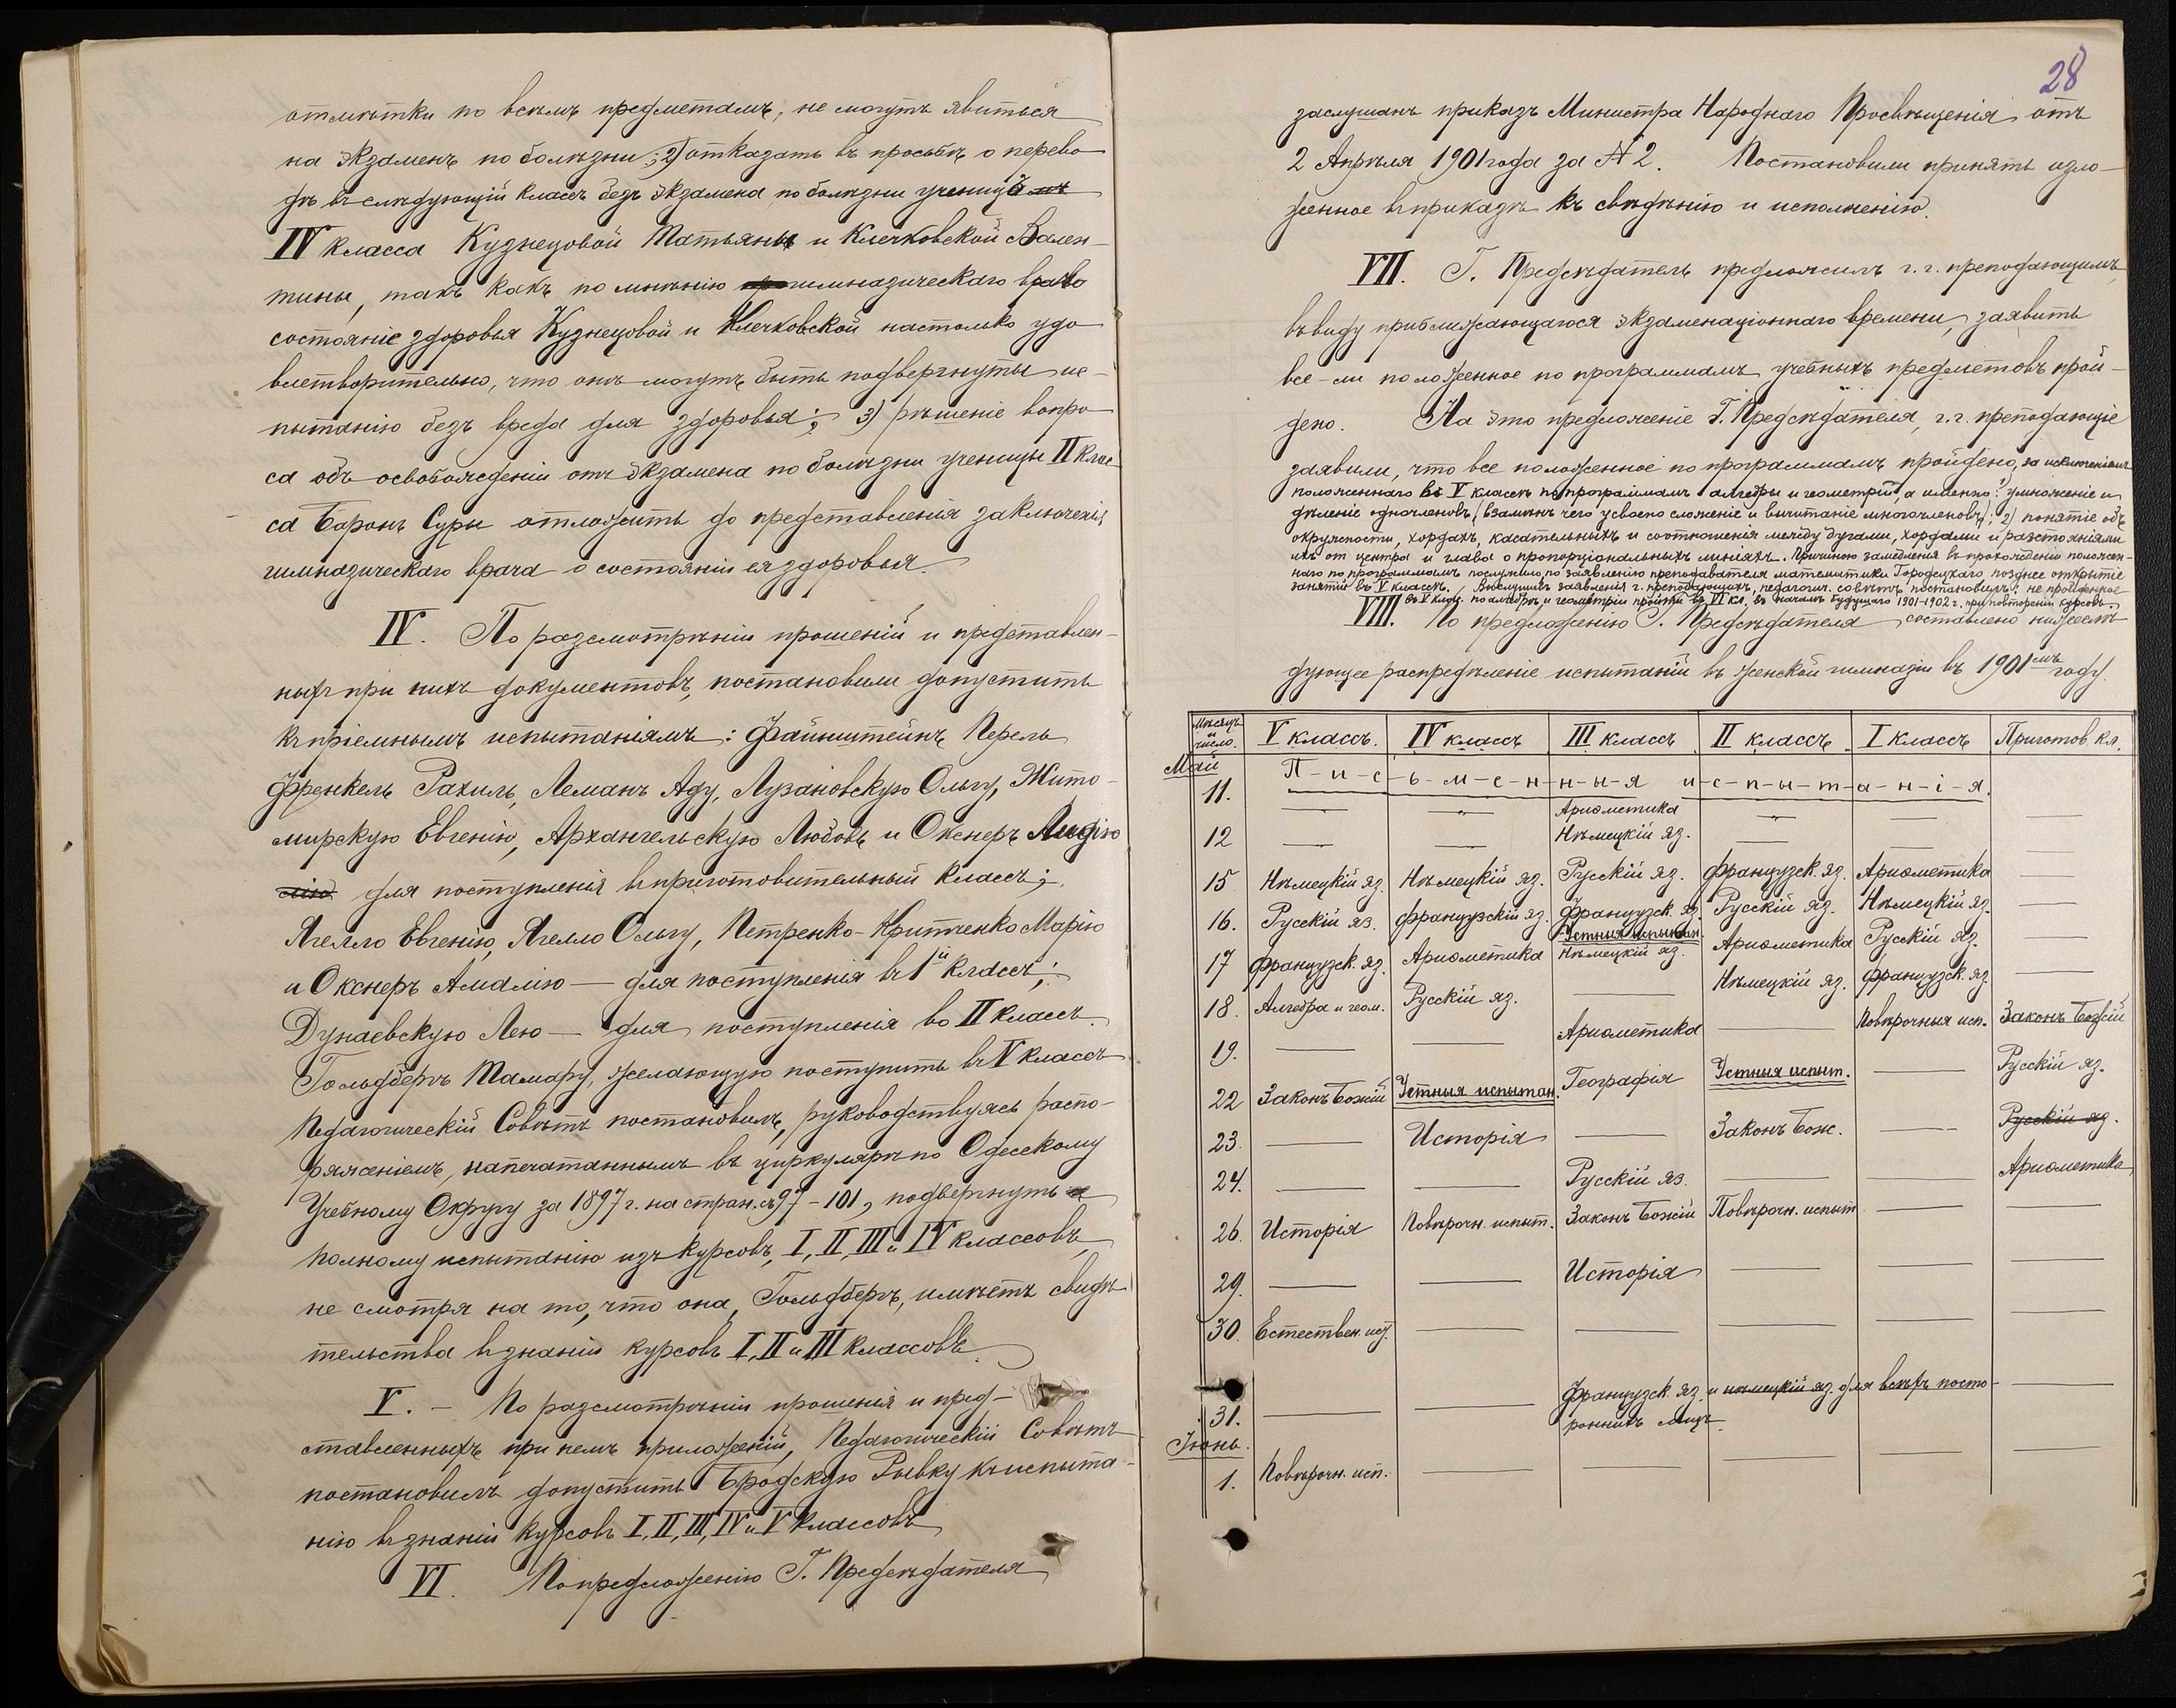 отмѣтки по всѣмъ предметамъ, не могутъ явиться
на экзаменъ по болѣзни; 2) отказать въ просьбѣ о перево-
дѣ въ слѣдующій классъ безъ экзамена по болѣзни ученицъ
IV класса Кузнецовой Татьяны и Клечковской Вален-
тины, такъ какъ по мнѣнію гимназическаго врача
состояніе здоровья Кузнецовой и Клечковской настолько удо-
влетворительно, что онѣ могутъ быть подвергнуты ис-
пытанію безъ вреда для здоровья; 3) рѣшеніе вопро-
са объ освобожденіи отъ экзамена по болѣзни ученицы II клас-
са Баронъ Суры отложить до представленія заключенія
гимназическаго врача о состояніи ея здоровья.
IV. По разсмотрѣніи прошеній и представлен-
ныхъ при нихъ документовъ, постановили допустить
къ пріемнымъ испытаніямъ: Файнштейнъ Перель
Френкель Рахиль, Леманъ Аду, Лузановскую Ольгу, Жито-
мирскую Евгенію, Архангельскую Любовь и Окснеръ Лидію
для поступленія въ приготовительный классъ;
Ягелло Евгенію, Ягелло Ольгу, Петренко-Критченко Марію
и Окснеръ Амалію — для поступленія въ 1й классъ;
Дунаевскую Лею — для поступленія во II классъ.
Гольдбергъ Тамару, желающую поступить въ V классъ
Педагогическій Совѣтъ постановилъ, руководствуясь распо-
ряженіемъ, напечатаннымъ въ циркулярѣ по Одесскому
Учебному Округу за 1897 г. на стран. 97-101, подвергнуть
полному испытанію изъ курсовъ I, II, III и IV классовъ,
не смотря на то, что она, Гольдбергъ, имѣетъ свидѣ-
тельства въ знаніи курсовъ I, II и III классовъ.
V. - По разсмотрѣніи прошенія и пред-
ставленныхъ при немъ приложеній, Педагогическій Совѣтъ
постановилъ допустить Бродскую Рывку къ испыта-
нію въ знаніи курсовъ I, II, III, IV и V классовъ
VI. По предложенію Г. Предсѣдателя
28
заслушанъ приказъ Министра Народнаго Просвѣщенія отъ
2 Апрѣля 1901 года за № 2. Постановили принять изло-
женное въ приказѣ къ свѣдѣнію и исполненію.
VII. Г. Предсѣдатель предложилъ г.г. преподающимъ,
въ виду приближающагося экзаменаціоннаго времени, заявить
все-ли положенное по программамъ учебныхъ предметовъ прой-
дено. На это предложеніе Г. Предсѣдателя, г.г. преподающіе
заявили, что все положенное по программамъ пройдено, за исключеніемъ
положеннаго въ V классѣ по программамъ алгебры и геометріи, а именно: 1) умноженіе и
дѣленіе одночленовъ (взамѣнъ чего усвоено сложеніе и вычитаніе многочленовъ); 2) понятіе объ
окружности, хордахъ, касательныхъ и соотношенія между дугами, хордами и разстояніями
ихъ от центра и глава о пропорціональныхъ линіяхъ. Причиною замедленія въ прохожденіи положен-
наго по программамъ послужило, по заявленію преподавателя математики Городецкаго, позднее открытіе
занятій въ V классѣ. Выслушавъ заявленія г. преподающихъ, педагогич. совѣтъ постановилъ: не пройденное
въ V клас. по алгебрѣ и геометріи пройти въ VI кл. въ началѣ будущаго 1901-1902 г. при повтореніи курсовъ.
VIII. По предложенію Г. Предсѣдателя составлено нижеслѣ-
дующее распредѣленіе испытаній въ женской гимназіи въ 1901мъ году.
Мѣсяцъ и число. V классъ. IV классъ III классъ II классъ I классъ Приготов. кл.
Май
П-и-с-ь-м-е-н-н-ы-я и-с-п-ы-т-а-н-і-я.
11. — — Ариѳметика — — —
12 — — Нѣмецкій яз. — — —
15 Нѣмецкій яз. Нѣмецкій яз. Русскій яз. Французск. яз. Ариѳметика —
16. Русскій яз. Французскій яз. Французск. яз. Русскій яз. Нѣмецкій яз. —
Устныя испытан.
17 Французск. яз. Ариѳметика Нѣмецкій яз. Ариѳметика Русскій яз. —
18. Алгебра и геом. Русскій яз. — Нѣмецкій яз. Французск. яз. —
19. — — Ариѳметика — Повѣрочныя исп. Законъ Божій
22 Законъ Божій Устныя испытан. Географія Устныя испыт. — Русскій яз.
23. — Исторія — Законъ Бож. — Русскій яз.
24. — — Русскій яз. — — Ариѳметика
26. Исторія Повѣрочн. испыт. Законъ Божій Повѣрочн. испыт — —
29. — — Исторія — — —
30. Естествен. ист. — — — — —
31. — — Французск. яз. и нѣмецкій яз. для всѣхъ посто-
роннихъ лицъ. —
Іюнь.
1. Повѣрочн. исп. — — — — —